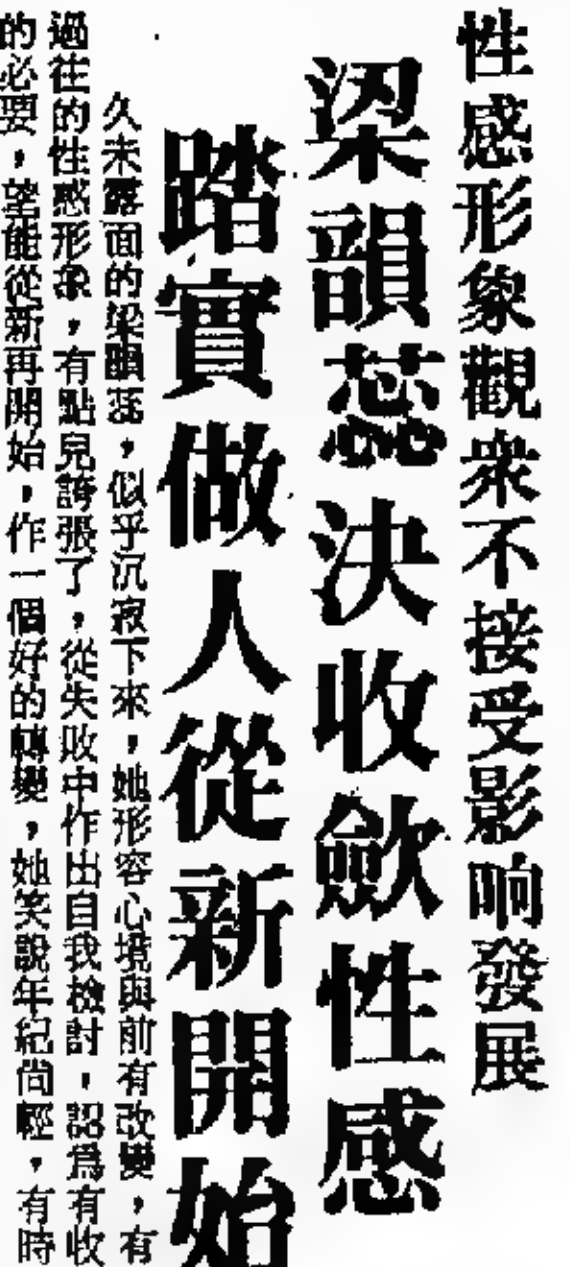 性感形象觀衆不接受影响發展
梁韻蕊決收歛性感
踏實做人從新開始
久未露面的梁韻蕊，似乎沉寂下來，她形容心境與前有改變，有
過往的性感形象，有點兒誇張了，從失敗中作出自我檢討，認爲有收
的必要，望能從新再開始，作一個好的轉變，她笑說年紀尚輕，有時